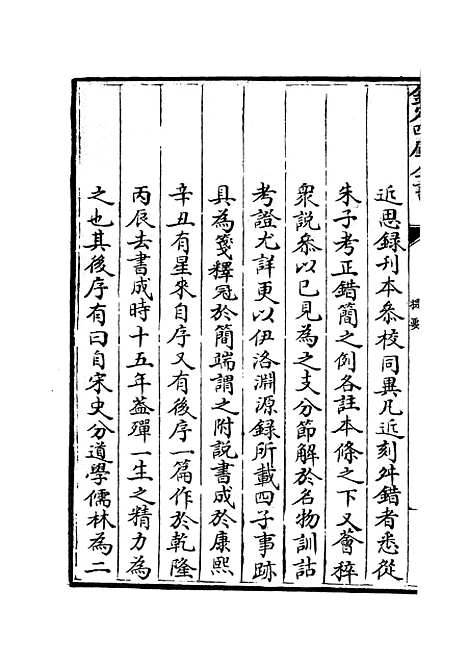 近思錄刊本叅校同異凡近刻舛錯者悉從
朱子考正錯簡之例各註本條之下又薈稡
衆說叅以已見為之支分節解於名物訓詁
考證尤詳更以伊洛淵源錄所載四子事跡
具為箋釋冠於簡端謂之附說書成於康熙
辛丑有星來自序又有後序一篇作於乾隆
丙辰去書成時十五年葢殫一生之精力為
之也其後序有曰自宋史分道學儒林為二
欽定四庫全書
提要